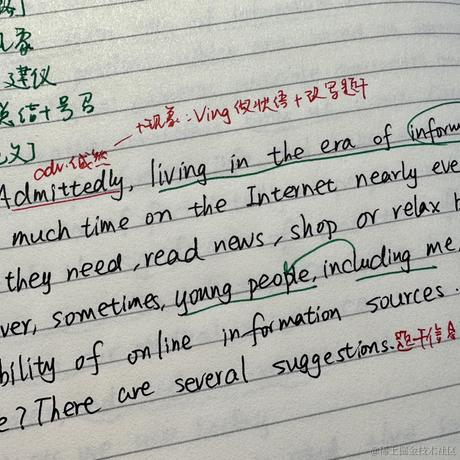 现象
建议
总结+号召
+现象：Ving做状语+改写题干
adv.诚然
Admittedly, living in the era of
much time on the Internet nearly
they need, read news, shop or relax
sometimes, young people, including me,
of online information sources.
? There are several suggestions. 题干信息
@稀土掘金技术社区